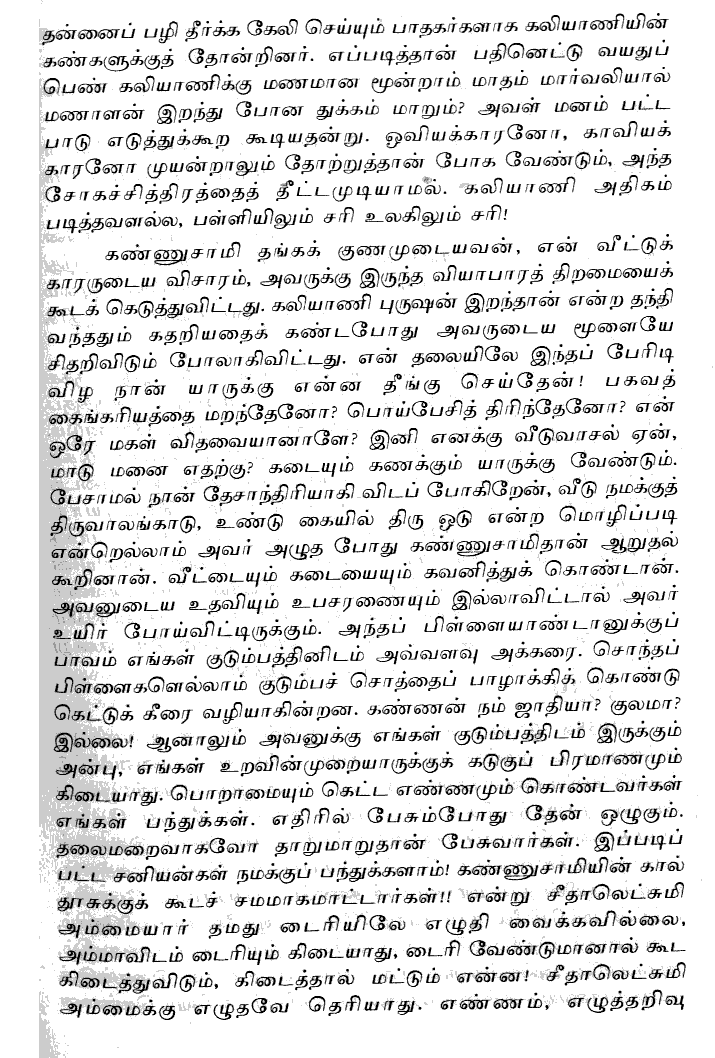 தன்னைப் பழி தீர்க்க கேலி செய்யும் பாதகர்களாக கலியாணியின்
கண்களுக்குத் தோன்றினர். எப்படித்தான் பதினெட்டு வயதுப்
பெண் கலியாணிக்கு மணமான மூன்றாம் மாதம் மார்வலியால்
மணாளன் இறந்து போன துக்கம் மாறும்? அவள் மனம் பட்ட
பாடு எடுத்துக்கூற கூடியதன்று. ஓவியக்காரனோ, காவியக்
காரனோ முயன்றாலும் தோற்றுத்தான் போக வேண்டும், அந்த
சோகச்சித்திரத்தைத் தீட்டமுடியாமல். கலியாணி அதிகம்
படித்தவளல்ல, பள்ளியிலும் சரி உலகிலும் சரி!
கண்ணுசாமி தங்கக் குணமுடையவன், என் வீட்டுக்
காரருடைய விசாரம், அவருக்கு இருந்த வியாபாரத் திறமையைக்
கூடக் கெடுத்துவிட்டது. கலியாணி புருஷன் இறந்தான் என்ற தந்தி
வந்ததும் கதறியதைக் கண்டபோது அவருடைய மூளையே
சிதறிவிடும் போலாகிவிட்டது. என் தலையிலே இந்தப் பேரிடி
விழ நான் யாருக்கு என்ன தீங்கு செய்தேன்! பகவத்
கைங்கரியத்தை மறந்தேனோ? பொய்பேசித் திரிந்தேனோ? என்
ஒரே மகள் விதவையானாளே? இனி எனக்கு வீடுவாசல் ஏன்,
மாடு மனை எதற்கு? கடையும் கணக்கும் யாருக்கு வேண்டும்.
பேசாமல் நான் தேசாந்திரியாகி விடப் போகிறேன், வீடு நமக்குத்
திருவாலங்காடு, உண்டு கையில் திரு ஓடு என்ற மொழிப்படி
என்றெல்லாம் அவர் அழுத போது கண்ணுசாமிதான் ஆறுதல்
கூறினான். வீட்டையும் கடையையும் கவனித்துக் கொண்டான்.
அவனுடைய உதவியும் உபசரணையும் இல்லாவிட்டால் அவர்
உயிர் போய்விட்டிருக்கும். அந்தப் பிள்ளையாண்டானுக்குப்
பாவம் எங்கள் குடும்பத்தினிடம் அவ்வளவு அக்கரை. சொந்தப்
பிள்ளைகளெல்லாம் குடும்பச் சொத்தைப் பாழாக்கிக் கொண்டு
கெட்டுக் கீரை வழியாகின்றன. கண்ணன் நம் ஜாதியா? குலமா?
இல்லை! ஆனாலும் அவனுக்கு எங்கள் குடும்பத்திடம் இருக்கும்
அன்பு, எங்கள் உறவின்முறையாருக்குக் கடுகுப் பிரமாணமும்
கிடையாது. பொறாமையும் கெட்ட எண்ணமும் கொண்டவர்கள்
எங்கள் பந்துக்கள். எதிரில் பேசும்போது தேன் ஒழுகும்.
தலைமறைவாகவோ தாறுமாறுதான் பேசுவார்கள். இப்படிப்
பட்ட சனியன்கள் நமக்குப் பந்துக்களாம்! கண்ணுசாமியின் கால்
தூசுக்குக் கூடச் சமமாகமாட்டார்கள்!! என்று சீதாலெட்சுமி
அம்மையார் தமது டைரியிலே எழுதி வைக்கவில்லை,
அம்மாவிடம் டைரியும் கிடையாது, டைரி வேண்டுமானால் கூட
கிடைத்துவிடும், கிடைத்தால் மட்டும் என்ன! சீதாலெட்சுமி
அம்மைக்கு எழுதவே தெரியாது. எண்ணம், எழுத்தறிவு